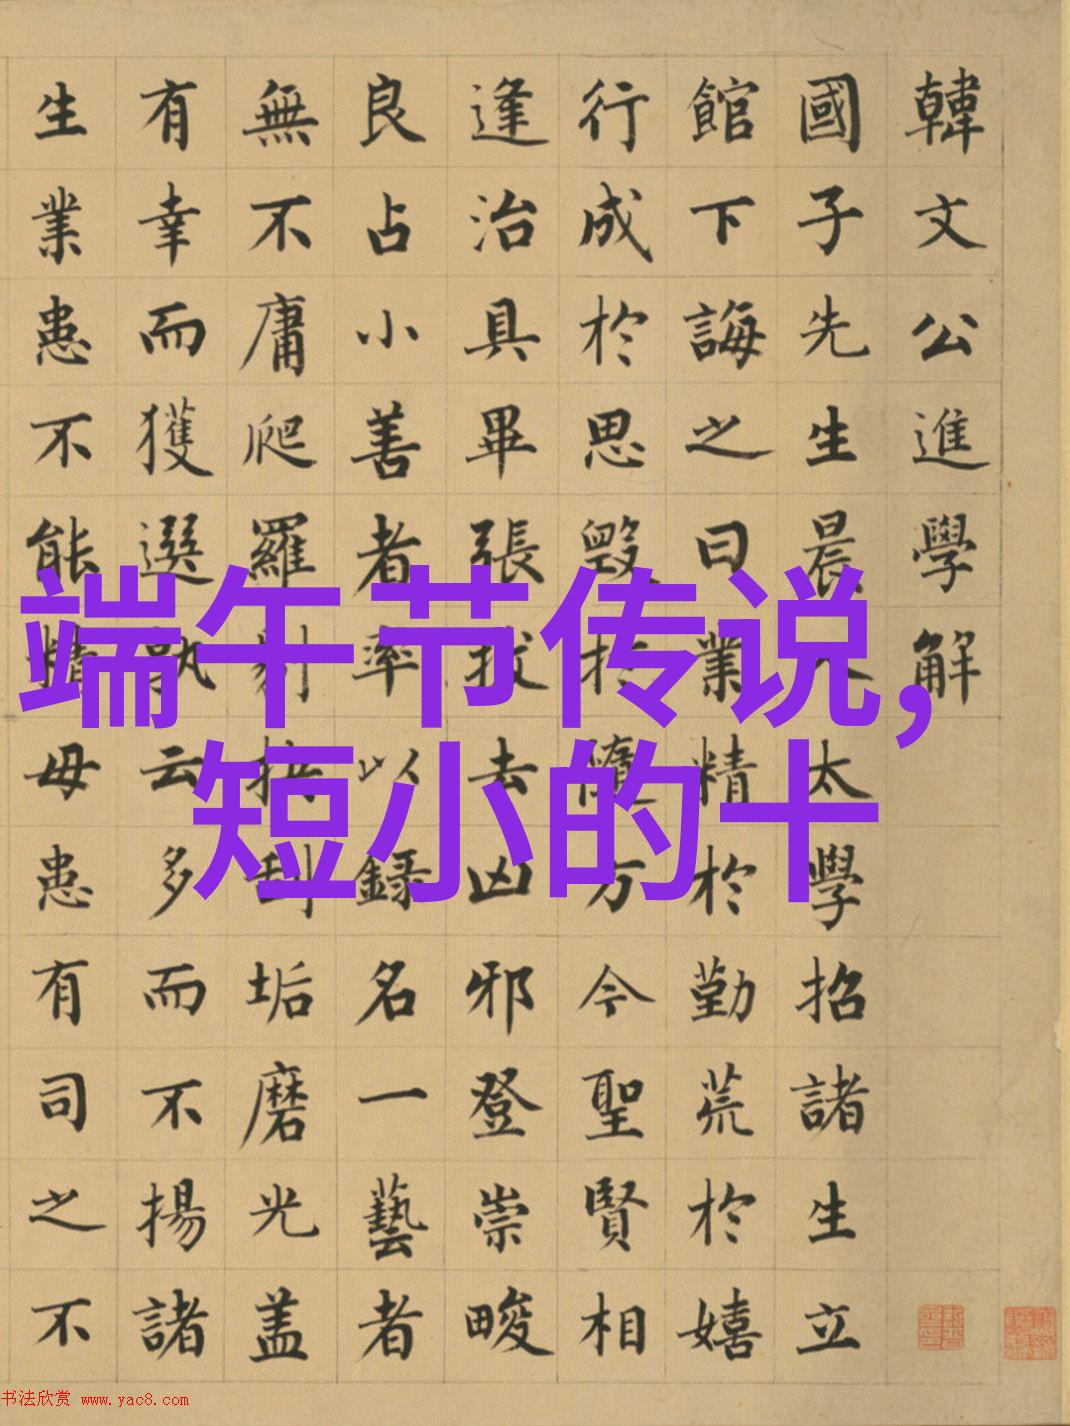 韓文公進學解
國子先生晨入太學招諸生立
館下誨之曰業精於勤荒於嬉
行成於思毀於隨方今聖賢相
逢治具畢張拔去凶邪登崇畯
良占小善者率以録名一藝者
無不庸爬羅剔抉刮垢磨光盖
有幸而獲選孰云多而不揚諸
生業患不能精毋患有司之不
端午节传说,
短小的十
书法欣赏 www.yac8.com